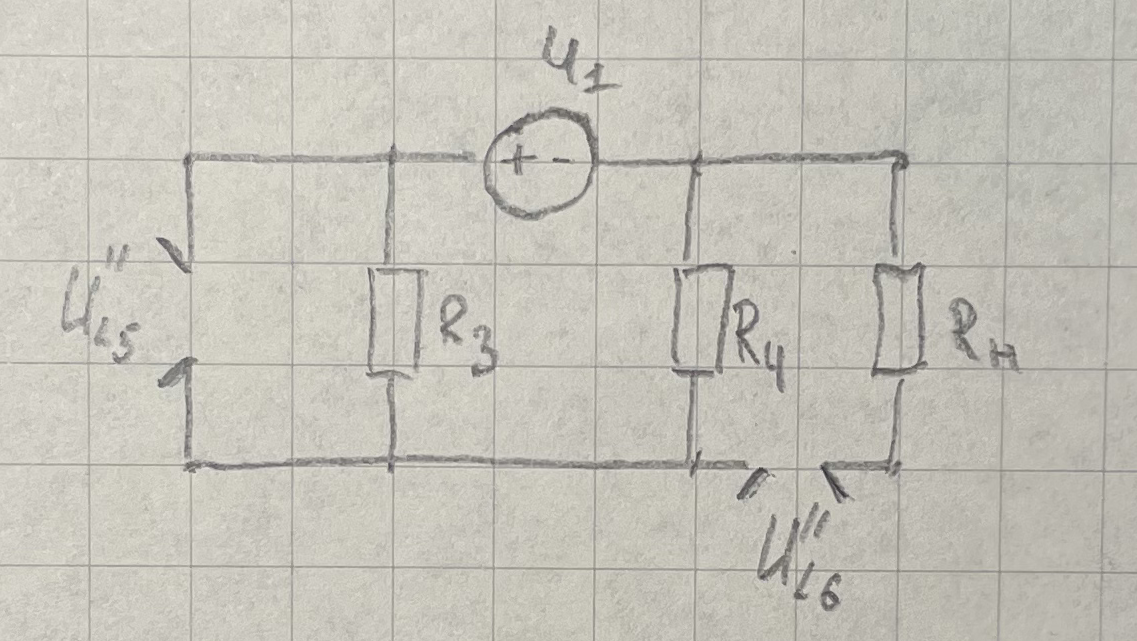 U1
+ -
U"L5
R3
R4
Rн
U"L6